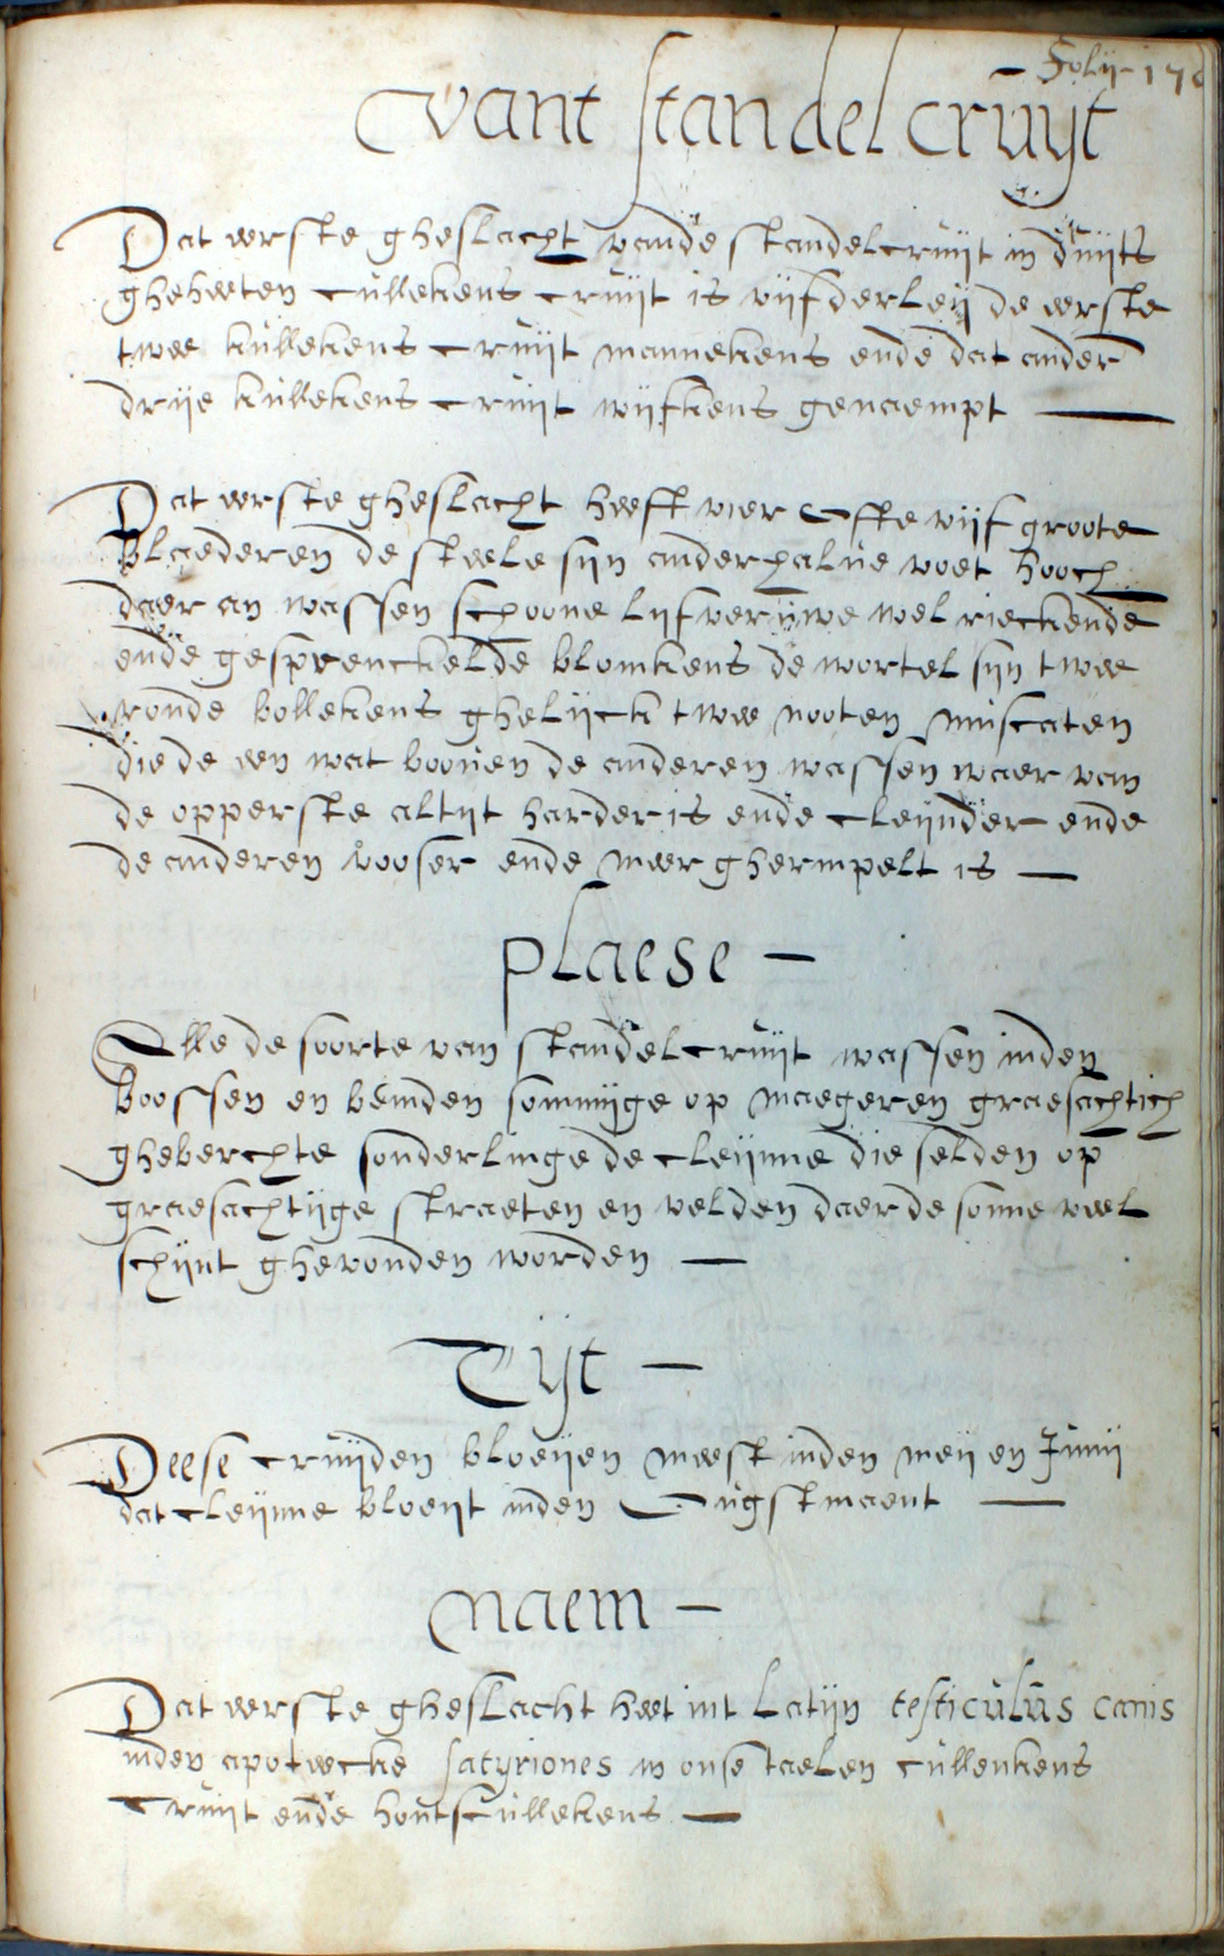 Folij 17
Vant standel cruyt
Dat eerste gheslacht vande standelcruijt in duijts
gheheeten cullekens cruijt is vijfderleij de eerste
twee kullekens cruijt mannekens ende dat ander
drije kullekens cruijt wijfkens genaempt
Dat eerste gheslacht heeft vier offte vijf groote
blaederen de steele sijn anderhalve voet hooch
daer an wassen schoone lijfveruwe wel rieckende
ende gesprenckelde blomkens de wortel sijn twee
ronde bollekens ghelijck twee nooten muscaten
die de een wat booven de anderen wassen waer van
de opperste altijt harder is ende cleijnder ende
de anderen vooser ende meer ghermpelt is
plaese
Alle de soorte van standelcruijt wassen inden
boossen en bemden sommijge op maegeren graesachtich
gheberchte sonderlinge de cleijnne die selden op
graesachtijge straeten en velden daer de sonne veel
schijnt ghevonden worden
Tijt
Deese cruijden bloeijen meest inden meij en Junij
dat cleijnne bloeijt inden Ougstmaent
Naem
Dat eerste gheslacht heet int Latijn testiculus canis
inden apoteecke satyriones in onse taelen cullenkens
cruijt ende hontscullekens